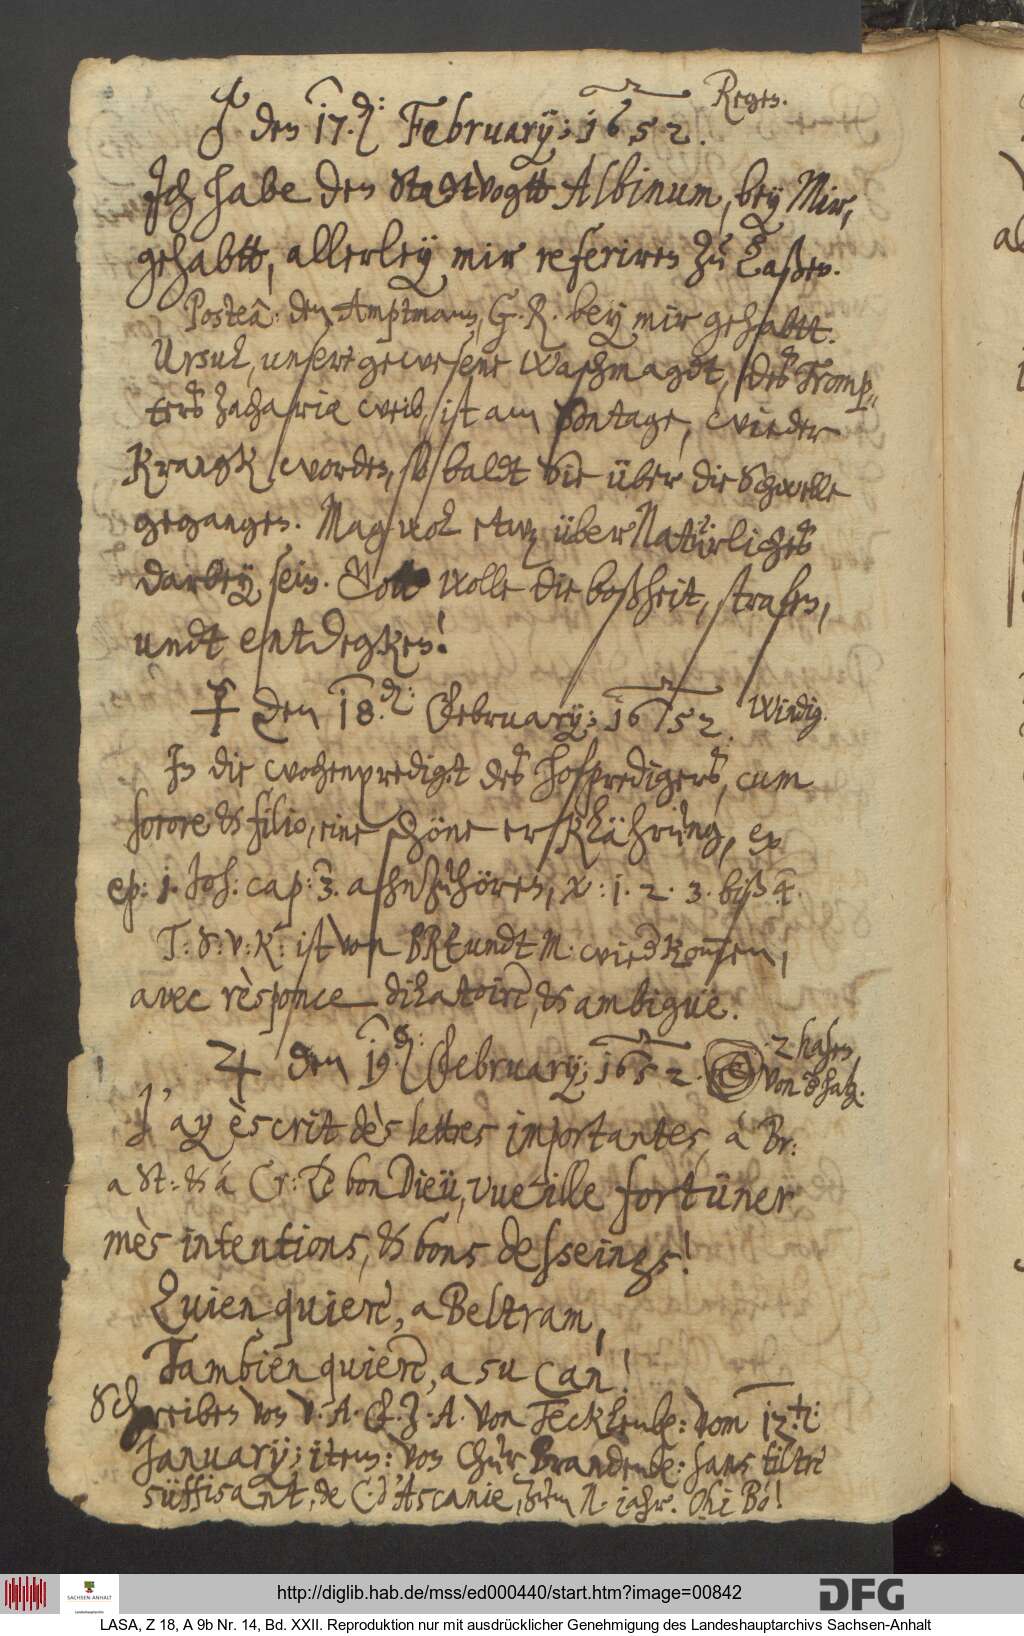 ♂ den 17.d: February; 1652. Regen.
Ich habe den Stadtvogtt Albinum, bey Mir,
gehabtt, allerley mir referiren zu laßen.
Posteâ: den Amptmann, G. R. bey mir gehabtt.
Ursul, unsere gewesene Waschmagdt, des Tromp„
ters Zachariæ weib, ist am Sontage, wieder
Krangk worden, so baldt Sie über die Schwelle
gegangen. Mag wol etwas über Natürliches
darbey sein. Gott wolle die boßheit, strafen,
undt entdegken!
☿ den 18.d: February; 1652. Windig.
In die wochenpredigt des hofpredigers, cum
sorore & filio, eine schöne erklährung, ex
ep: 1. Joh: cap: 3. anzuhören, x: 1. 2. 3. biß 4.
T: S: v: K: ist von BRE undt M: wiedkommen,
avec rèsponce dilatoire, & ambigue.
♃ den 19.d: February; 1652. 2 hasen,
von
J'ay èscrit dès lettres importantes, á Br:
a St: & á Cr: Le bon Dieü, vueille fortüner
mès intentions, & bons desseings!
Quien quiere, a Beltram,
Tambien quiere, a su Can!
Schreiben von V. A. F. Z. A. von Tecklenb: vom 12.t:
January; item: von Chur Brandenb: sans tiltre
süffisant, de C: d'Ascanie, zum N. jahr. Ohi Bó!
http://diglib.hab.de/mss/ed000440/start.htm?image=00842
SACHSEN-ANHALT
Landeshauptarchiv
DFG
LASA, Z 18, A 9b Nr. 14, Bd. XXII. Reproduktion nur mit ausdrücklicher Genehmigung des Landeshauptarchivs Sachsen-Anhalt